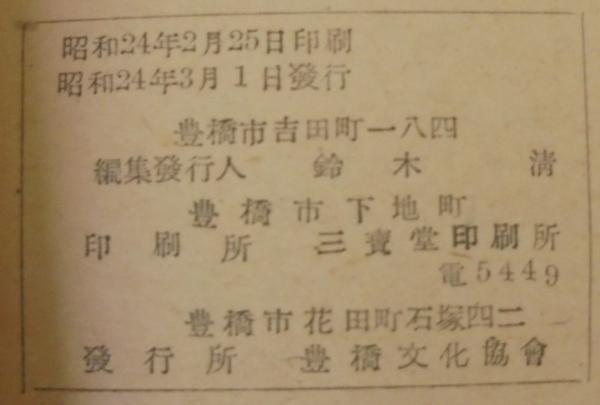 昭和24年2月25日印刷
昭和24年3月1日發行
豊橋市吉田町一八四
編集發行人 鈴木 淸
豊橋市下地町
印刷所 三寶堂印刷所
電5449
豊橋市花田町石塚四二
發行所 豊橋文化協會